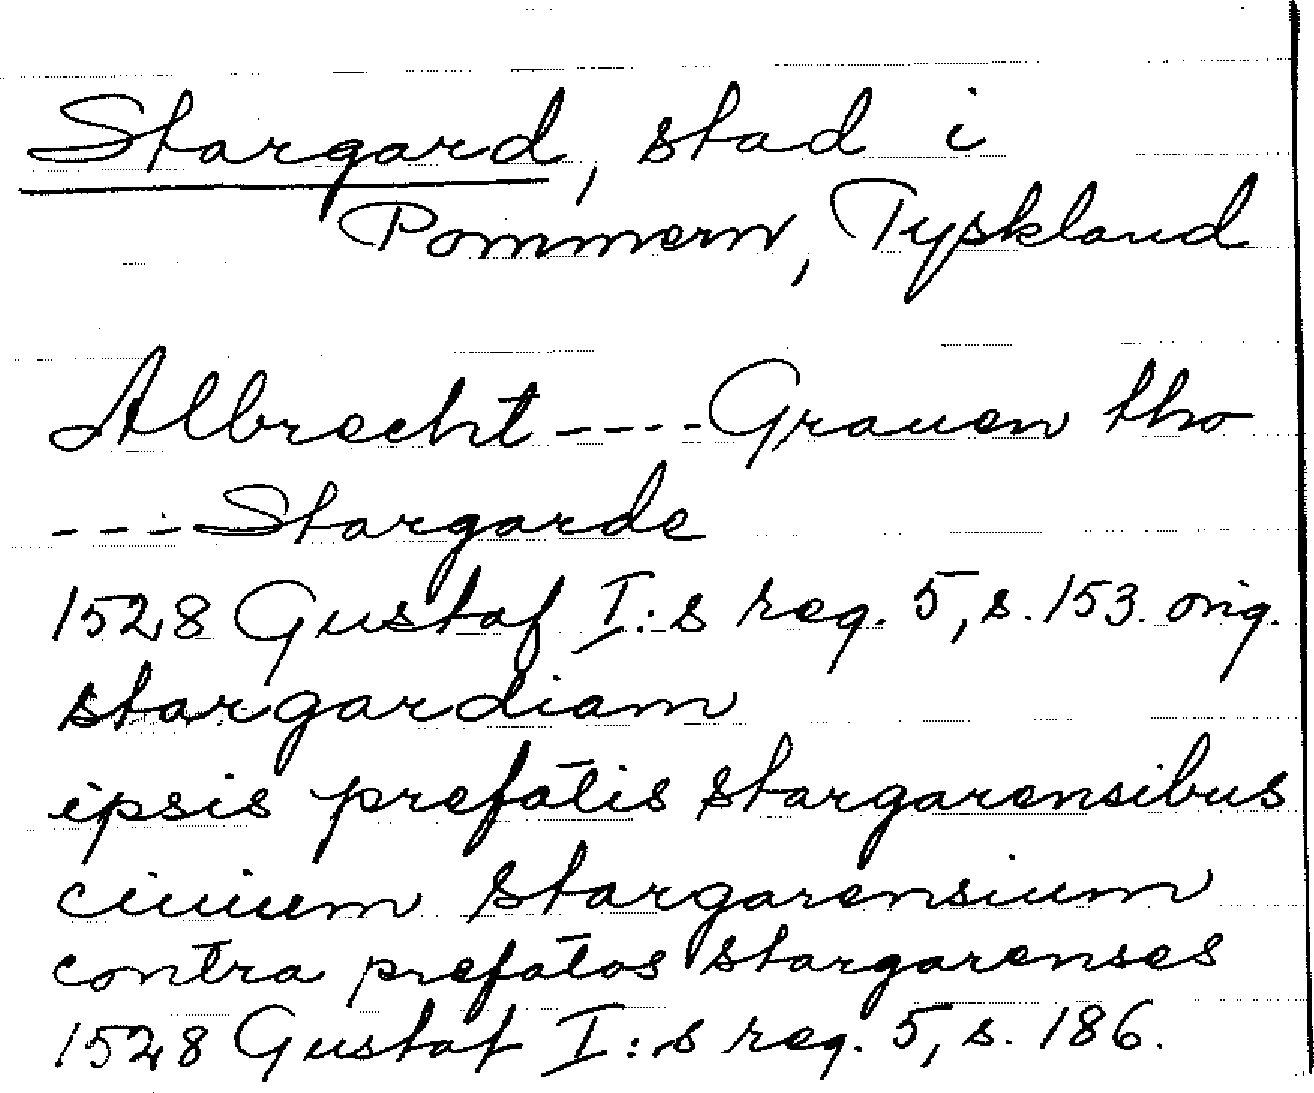 Stargard, stad i
Pommern, Tyskland
Albrecht ---- Grauen tho
--- Stargarde
1528 Gustaf I:s reg. 5, s. 153. orig.
stargardiam
ipsis prefatis stargarensibus
ciuium stargarensium
contra prefatos stargarenses
1528 Gustaf I:s reg. 5, s. 186.